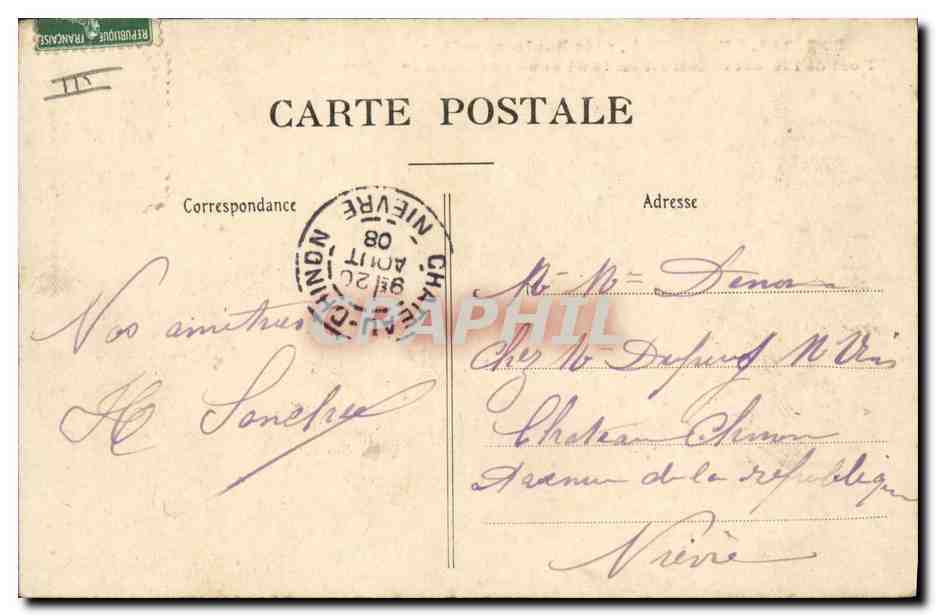 REPUBLIQUE
FRANÇAISE
III
CARTE POSTALE
Correspondance
Adresse
CHATEAU-CHINON NIEVRE
9E 20
AOUT
08
CPAPHIL
Nos amitiés
H
Mr Mme
Chez Mr Nd Vin
Chateau Chinon
Avenue de la république
Nièvre